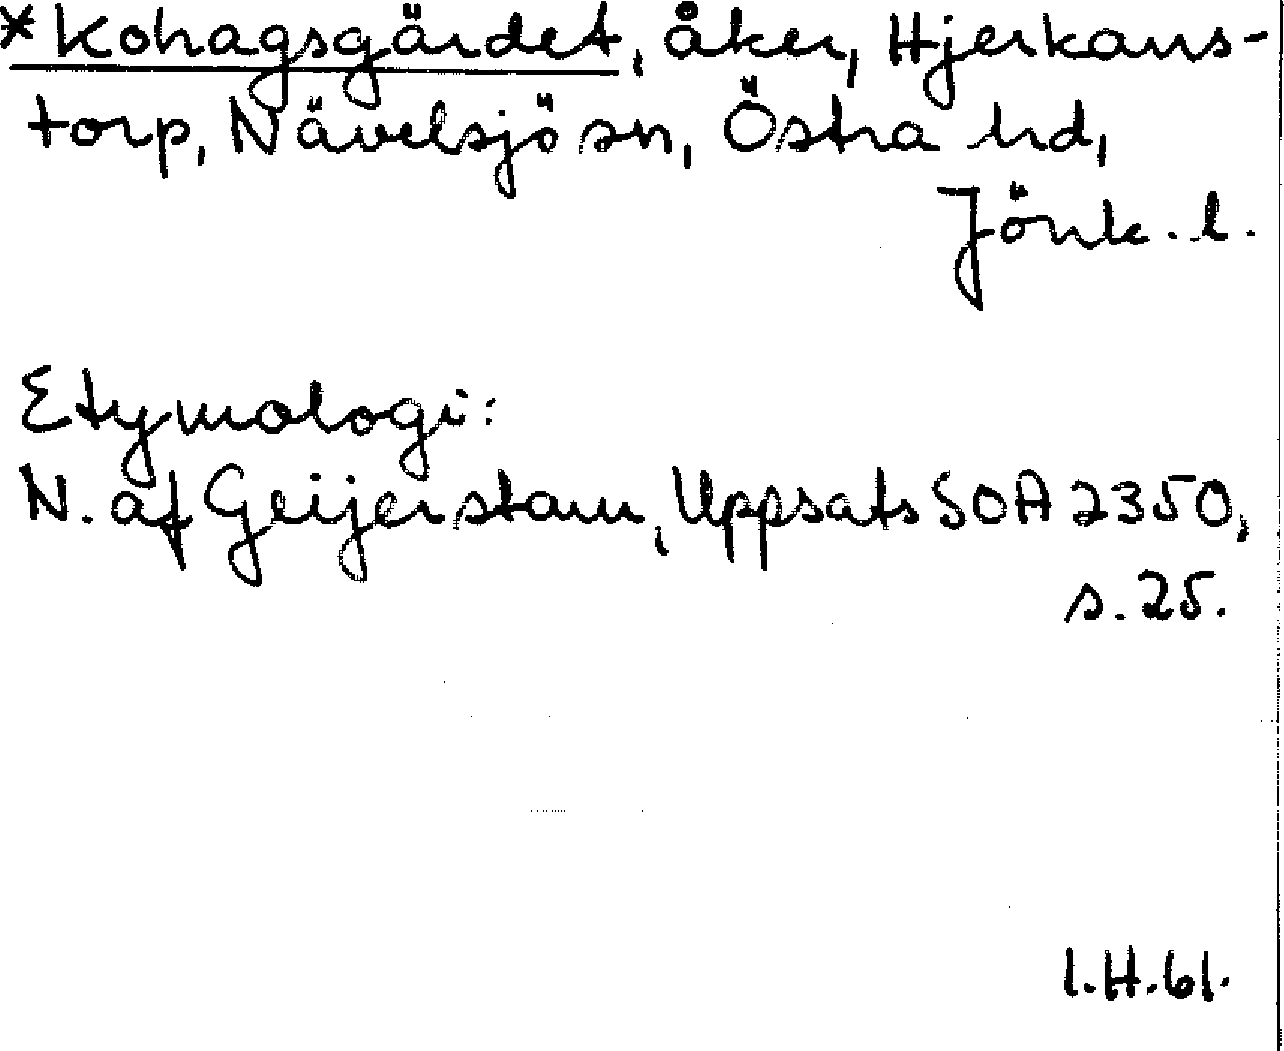 *Kohagsgärdet, åker, Hjerkans-
torp, Nävelsjö sn, Östra hd,
Jönk. l.
Etymologi:
N. af Geijerstam, Uppsats SOA 2350,
s. 25.
I.H.61.